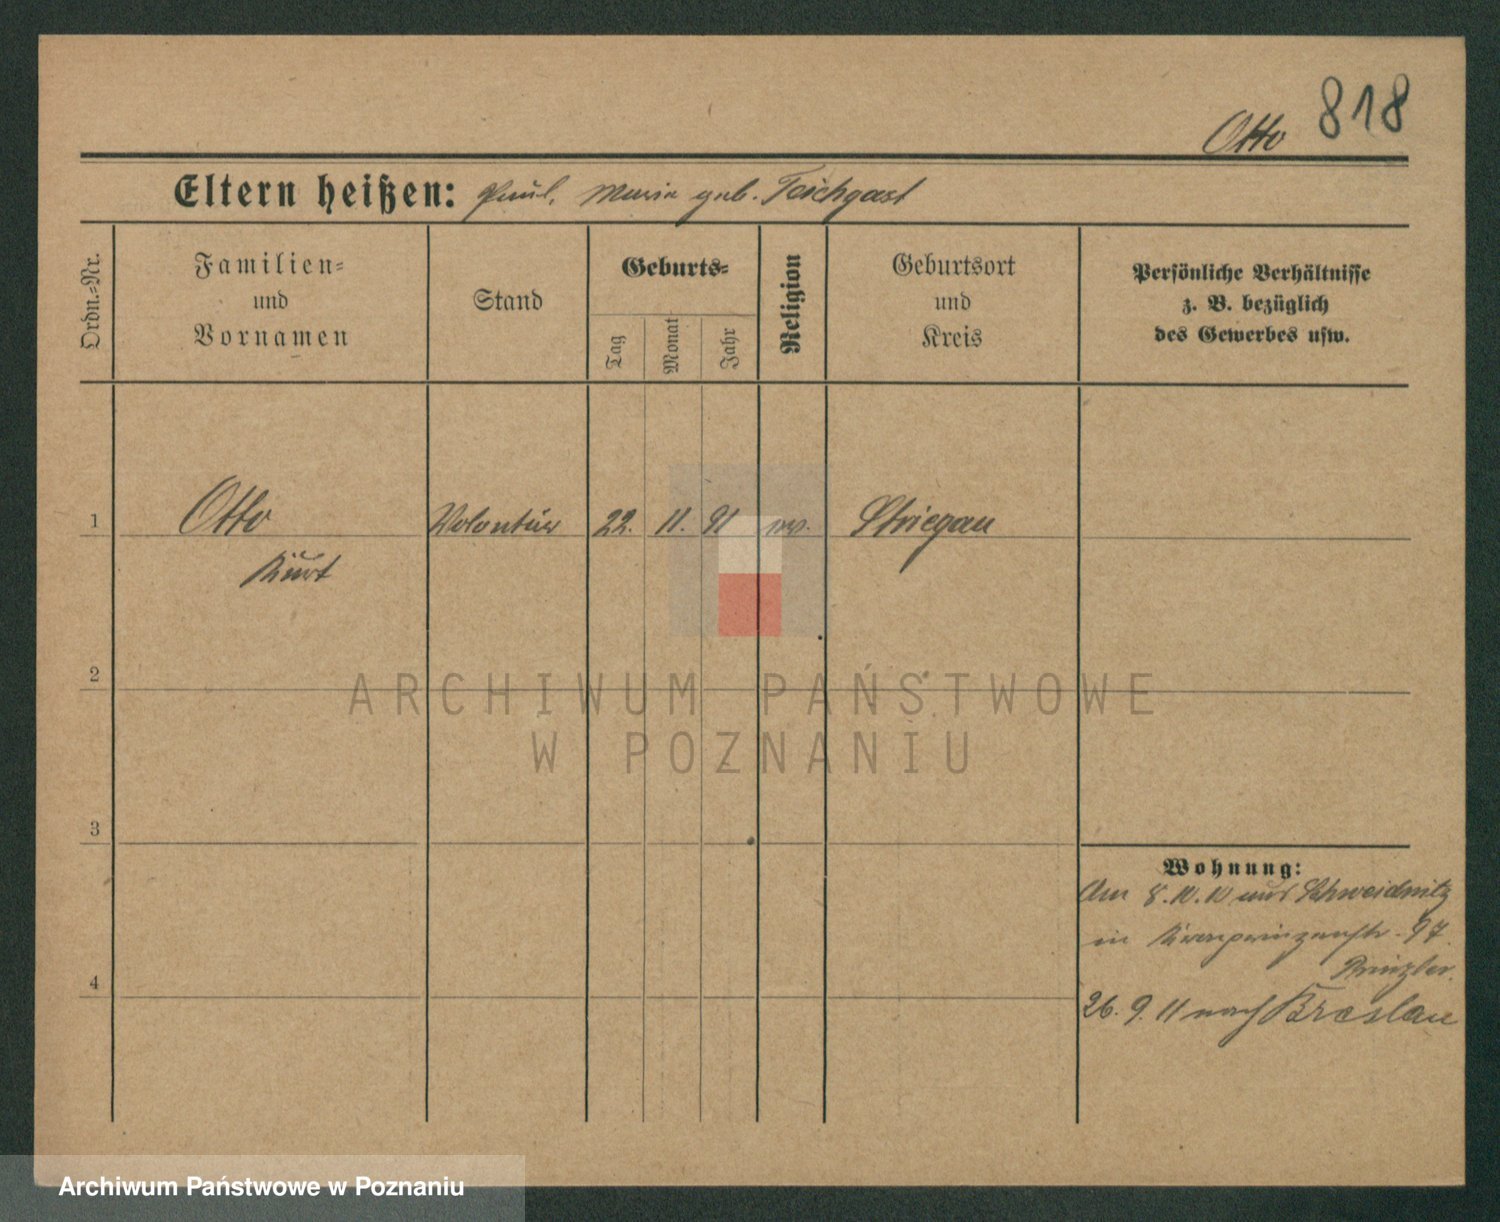 818
Otto
Eltern heißen: Paul, Maria geb. Teichgast
Ordn.-Nr.
Familien-
und
Vornamen
Stand
Geburts-
Tag
Monat
Jahr
Religion
Geburtsort
und
Kreis
Persönliche Verhältnisse
z. B. bezüglich
des Gewerbes usw.
1 Otto Volontär 22. 11. 91 ev. Striegau
Kurt
2
3
4
Wohnung:
Am 8.10.10 aus Schweidnitz
in Kronprinzenstr. 97
26. 9. 11 nach Breslau
ARCHIWUM PAŃSTWOWE
W POZNANIU
Archiwum Państwowe w Poznaniu